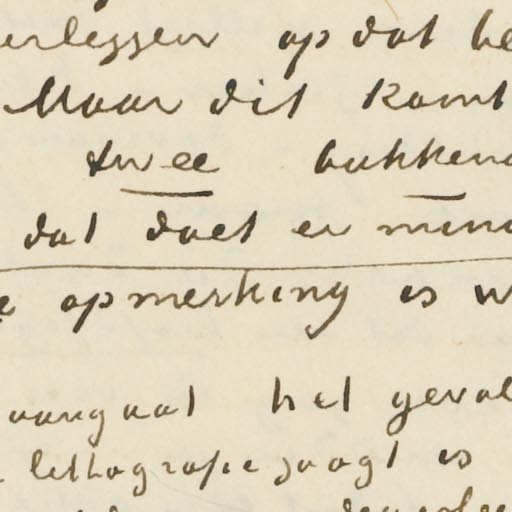 erleggen op dat he
Maar dit komt
twee bakken
dat doet er min
e opmerking is w
aangaat het geval
lithografie zaagt is